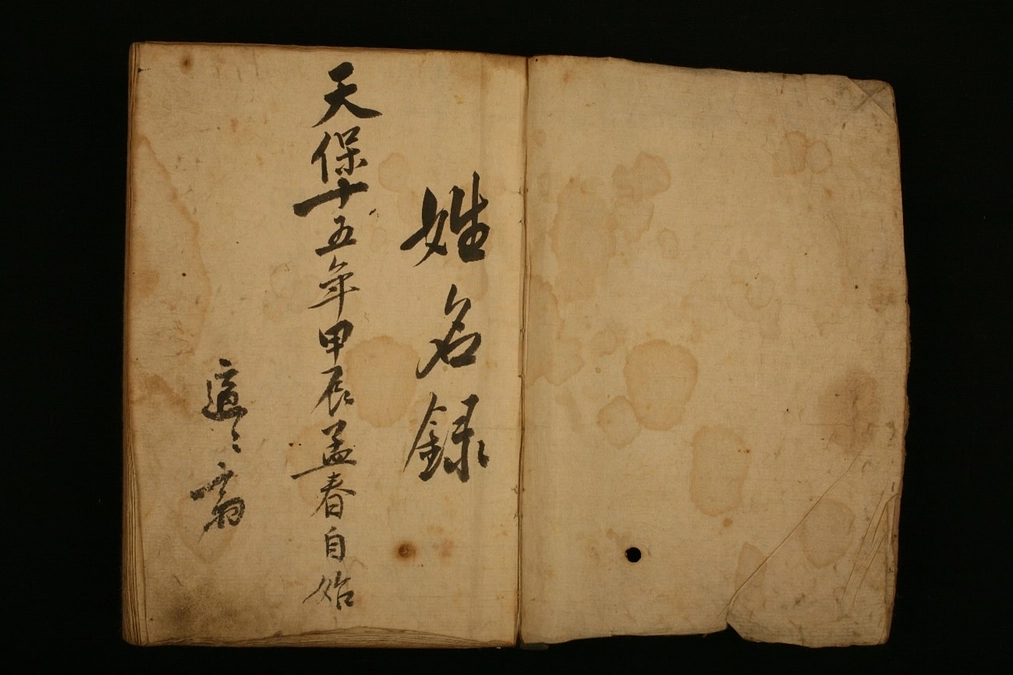 姓名録
天保十五年甲辰孟春自始
適々斎